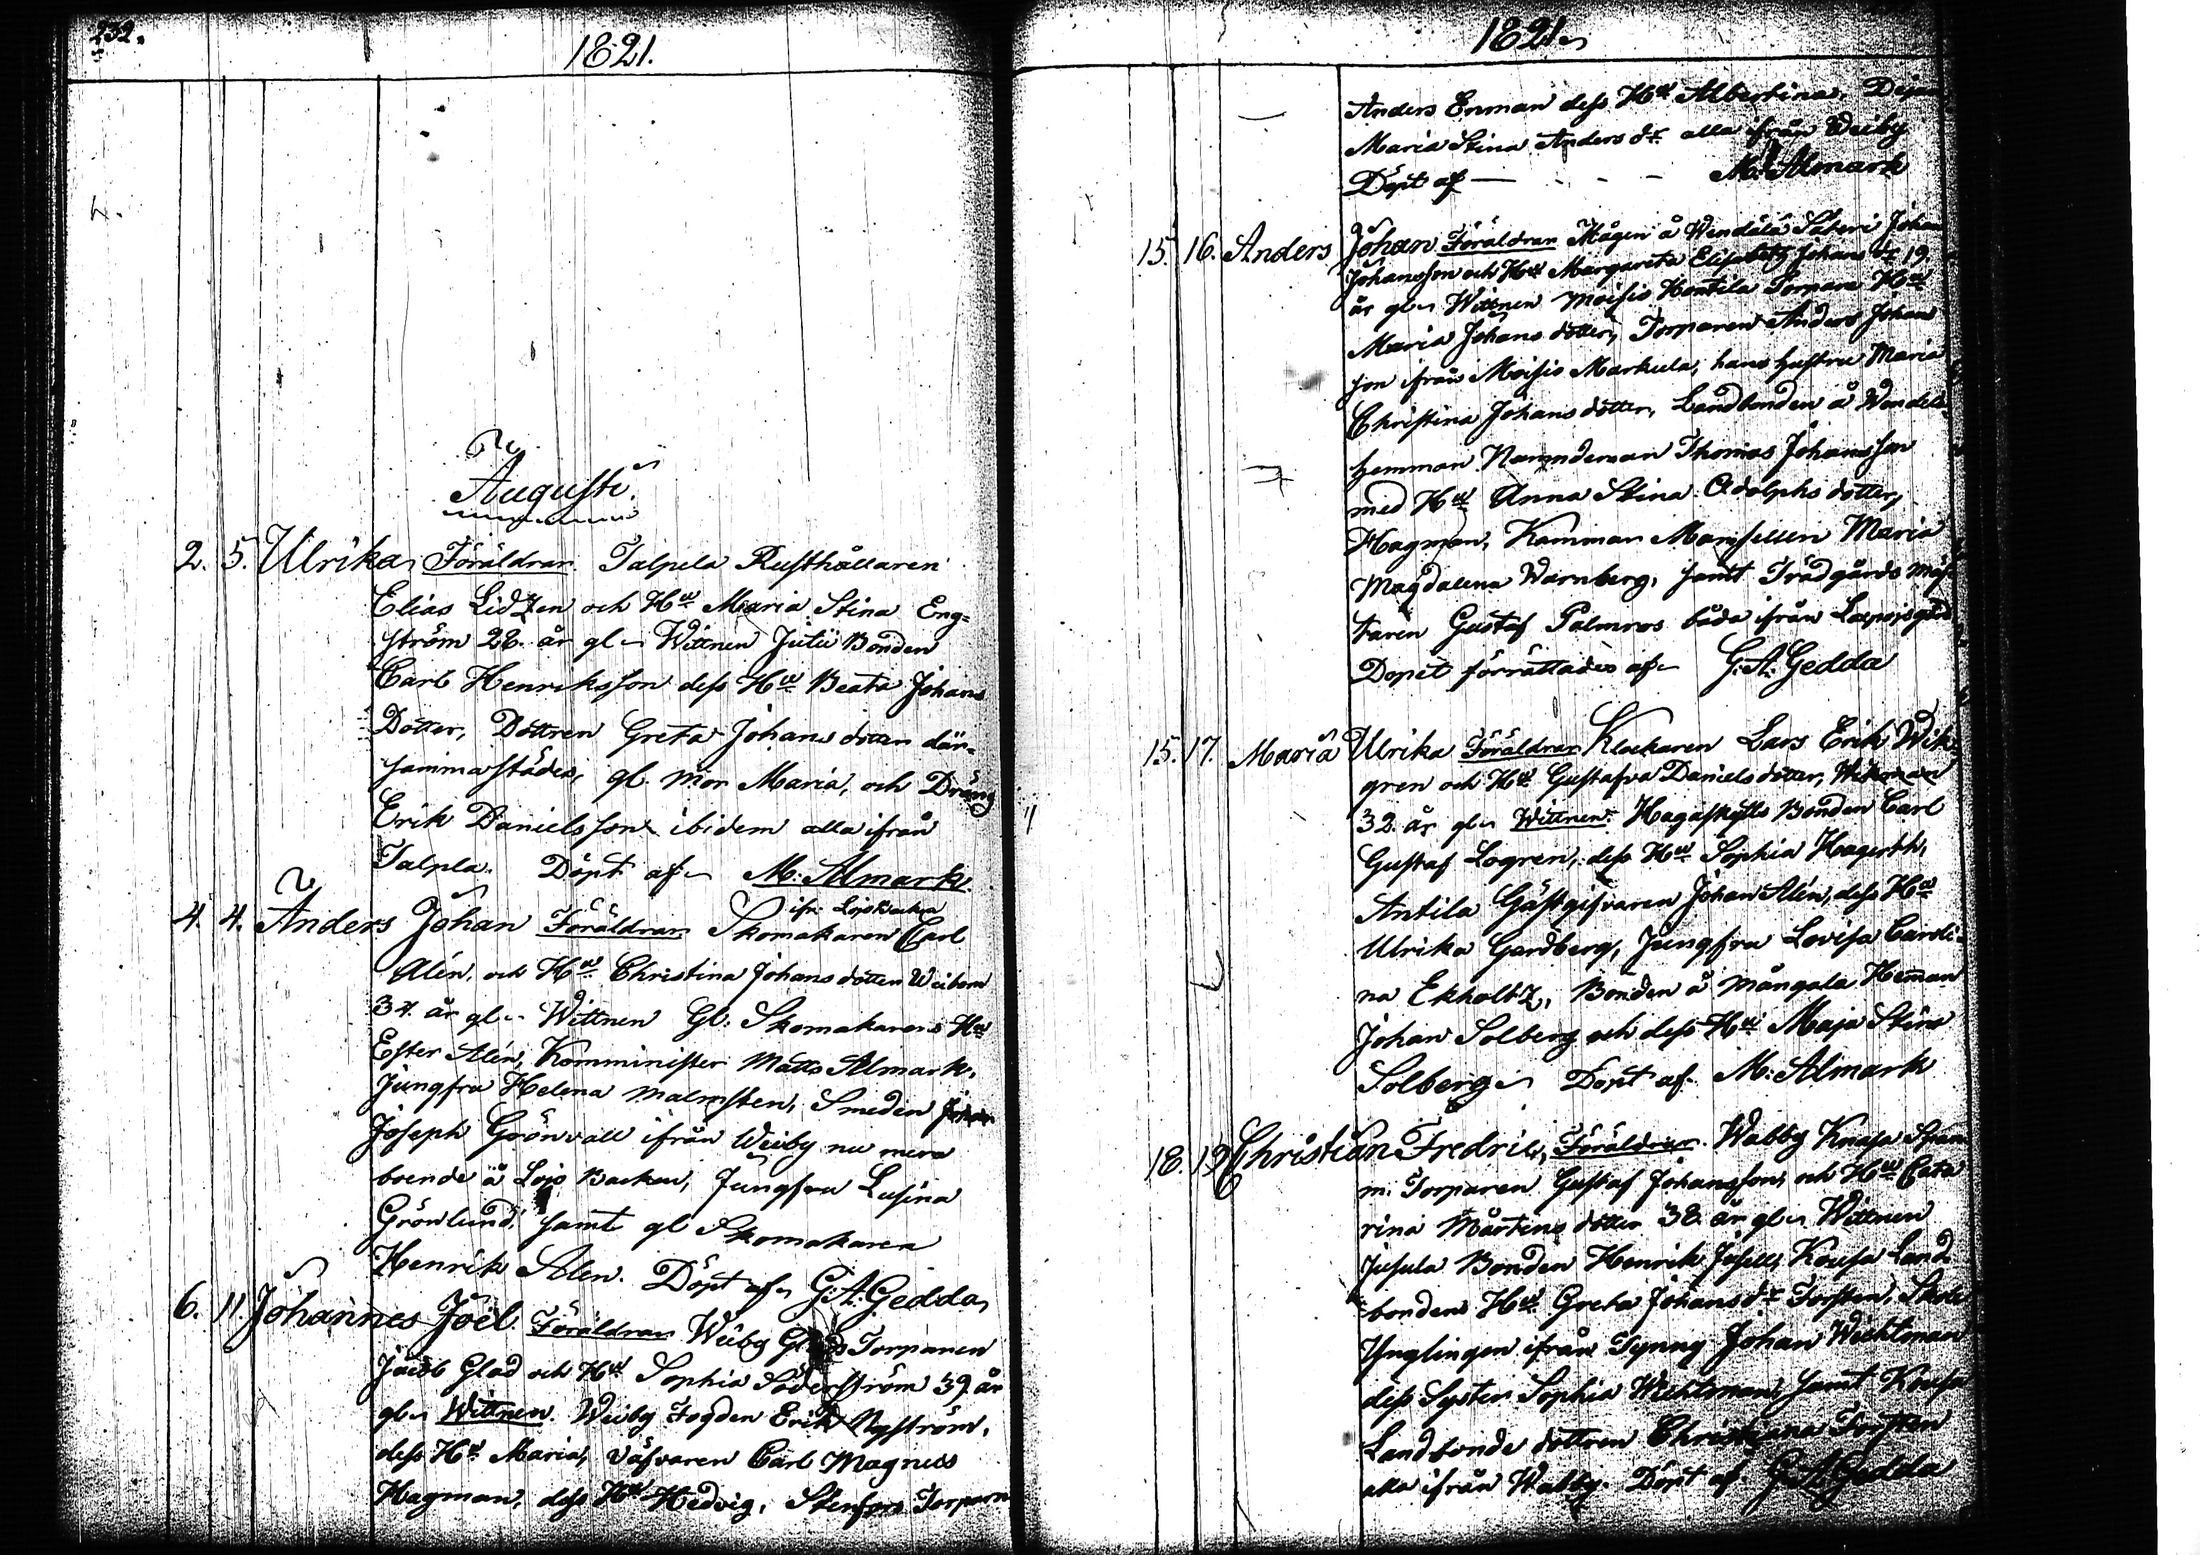 232.
1821.
Augusti.
2. 5. Ulrika Föräldrar. Talpela Rusthållaren
Elias Lidzen och Hu Maria Stina Eng=
ström 28. år gl. Wittnen Jutii Bonden
Carl Henriksson dess Hu Beata Johans
Dotter, Dottren Greta Johans dotter där=
sammastädes, gl. mor Maria, och Dräng
Erik Danielsson ibidem alla ifrån
Talpla. Döpt af M: Almark.
ifr: Lojo Backa
4. 4. Anders Johan Föräldrar Skomakaren Carl
Alén, och Hu Christina Johans dotter
34. år gl. Wittnen Gl: Skomakarens Hu
Ester Alén, Komminister Matts Almark,
Jungfru Helena Malmsten, Smeden
Joseph Grönvall ifrån Weiby nu mera
boende å Lojo Backen, Jungfru Lusina
Grönlund, samt gl Skomakaren
Henrik Alen. Döpt af G: A: Gedda
6. 11. Johannes Joël Föräldrar Weiby Torparen
Jacob Glad och Hu Sophia Söderström 39 år
gl. Wittnen. Weiby Fogden Erik Nyström,
dess Hu Maria, Väfvaren Carl Magnus
Hagman, dess Hu Hedvig, Stenfors Torparn
1821.
Anders Enman dess Hu Albertina,
Maria Stina Anders dr alla ifrån Weiby
Döpt af — M: Almark
15. 16. Anders Johan Föräldrar Mågen å Wendelä Säteri Johan
Johansson och Hu Margareta Elisabeth Johans dr 19
år gl. Wittnen Moisio Hontila Torpare Hu
Maria Johans dotter, Torparen Anders Johan
son ifrån Moisio Markula, hans hustru Maria
Christina Johans dotter, Landbonden å Wendelä
hemman Namndeman Thomas Johansson
med Hu Anna Stina Adolphs dotter,
Hagman, Kammar Mamsellen Maria
Magdalena Warnberg, samt Trädgårds mäs
taren Gustaf Palmros båda ifrån Laxpojogård
Dopet förrättades af G: A: Gedda
15. 17. Maria Ulrika Föräldrar Klockaren Lars Erik Wik
gren och Hu Gustafva Daniels dotter, Wikman
32. år gl. Wittnen. Hagaskylls Bonden Carl
Gustaf Logren, dess Hu Sophia Hagerth,
Antila Gästgifvaren Johan Alén, dess Hu
Ulrika Gardberg, Jungfru Lovisa Caroli=
na Ekholtz, Bonden å Mångala Heman
Johan Solberg och dess Hu Maja Stina
Solberg. Döpt af M: Almark
18. 19 Christian Fredric, Föräldrar. Wabby Knapa
m: Torparen Gustaf Johansson och Hu Cata
rina Mårtens dotter 38. år gl. Wittnen
Jusula Bonden Henrik Josell, Koupa Land
bondens Hu Greta Johans dr Forsten,
Ynglingen ifrån Tynny Johan Wichtman
dess Syster Sophia Wichtman, samt Koupa
Landbonde dottren Christiana Forsten
alla ifrån Wabby. Döpt af G: A: Gedda